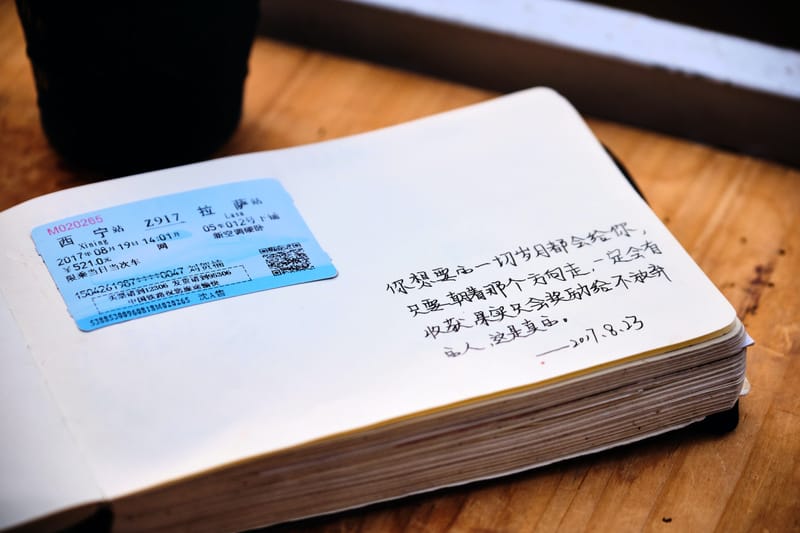 M020265
西宁站 Z917 拉萨站
Xining Lasa
2017年08月19日14:01开 05车012号下铺
¥521.0元 网 新空调硬卧
限乘当日当次车
1504261987****0047
买票请到12306 发货请到95306
中国铁路祝您旅途愉快
你想要的一切岁月都会给你,
只要朝着那个方向走,一定会有
收获,果实只会奖励给不放弃
的人,这是真的。
——2017.8.23